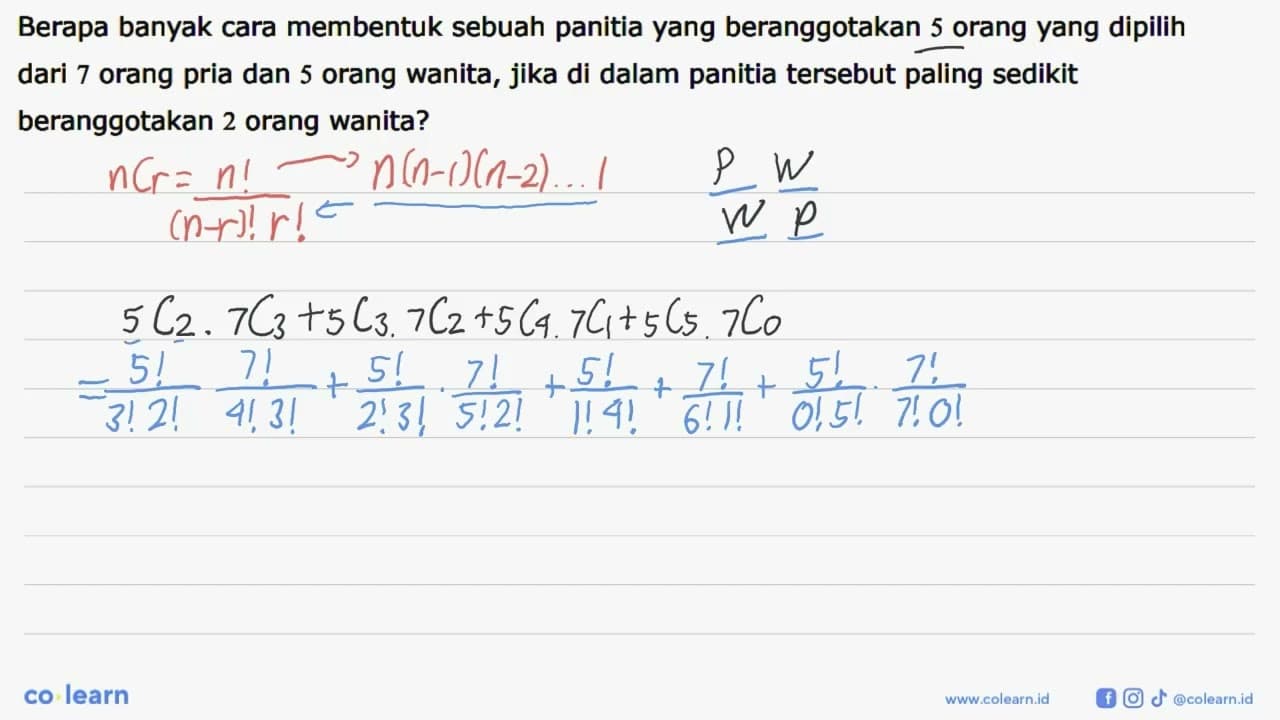 Berapa banyak cara membentuk sebuah panitia yang beranggotakan 5 orang yang dipilih
dari 7 orang pria dan 5 orang wanita, jika di dalam panitia tersebut paling sedikit
beranggotakan 2 orang wanita?
nCr = n!/(n-r)! r! → n(n-1)(n-2)...1
P W
W P
5C2 . 7C3 + 5C3 . 7C2 + 5C4 . 7C1 + 5C5 . 7C0
= 5!/3! 2! 7!/4! 3! + 5!/2! 3! . 7!/5! 2! + 5!/1! 4! + 7!/6! 1! + 5!/0! 5! . 7!/7! 0!
co learn
www.colearn.id @colearn.id